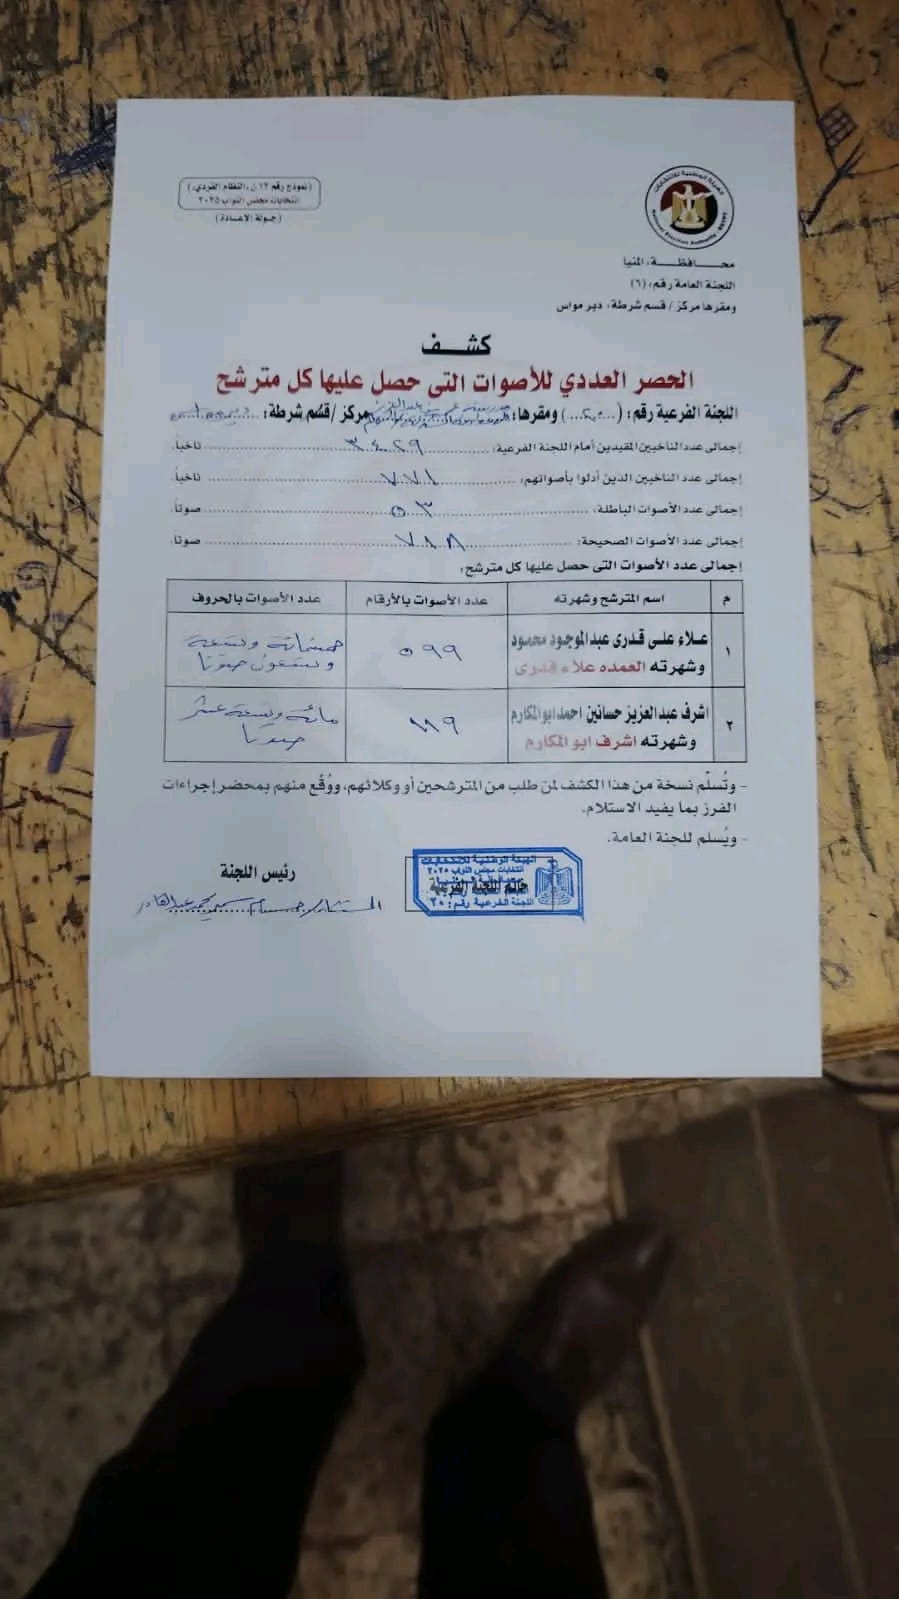 (نموذج رقم ١٢ ن، النظام الفردي،)
انتخابات مجلس النواب ٢٠٢٥
(جولة الإعادة)
الهيئة الوطنية للانتخابات
National Election Authority - EGYPT
محـــافظـــة: المنيا
اللجنة العامة رقم: (٦)
ومقرها مركز / قسم شرطة: دير مواس
كشـــف
الحصر العددي للأصوات التى حصل عليها كل مترشح
اللجنة الفرعية رقم: (٢٠) ومقرها: مركز / قسم شرطة: ديرمواس
إجمالى عدد الناخبين المقيدين أمام اللجنة الفرعية: ٣٤٢٩ ناخباً.
إجمالى عدد الناخبين الذين أدلوا بأصواتهم: ٧٧١ ناخباً.
إجمالى عدد الأصوات الباطلة: ٥٣ صوتاً.
إجمالى عدد الأصوات الصحيحة: ٧١٨ صوتاً.
إجمالى عدد الأصوات التى حصل عليها كل مترشح:
م اسم المترشح وشهرته عدد الأصوات بالأرقام عدد الأصوات بالحروف
١ علاء على قدرى عبدالموجود محمود ٥٩٩ خمسمائة وتسعة
وشهرته العمده علاء قدرى وتسعون صوتا
٢ اشرف عبدالعزيز حسانين احمد ابوالمكارم ١١٩ مائة وتسعة عشر
وشهرته اشرف ابو المكارم صوتا
- وتُسلّم نسخة من هذا الكشف لمن طلب من المترشحين أو وكلائهم، ووُقّع منهم بمحضر إجراءات
الفرز بما يفيد الاستلام.
- ويُسلم للجنة العامة.
رئيس اللجنة
المستشار
خاتم اللجنة الفرعية
الهيئة الوطنية للانتخابات
انتخابات مجلس النواب ٢٠٢٥
اللجنة الفرعية رقم: ٢٠